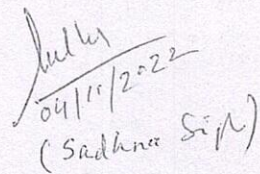 04/11/2022
(Sadhna Singh)